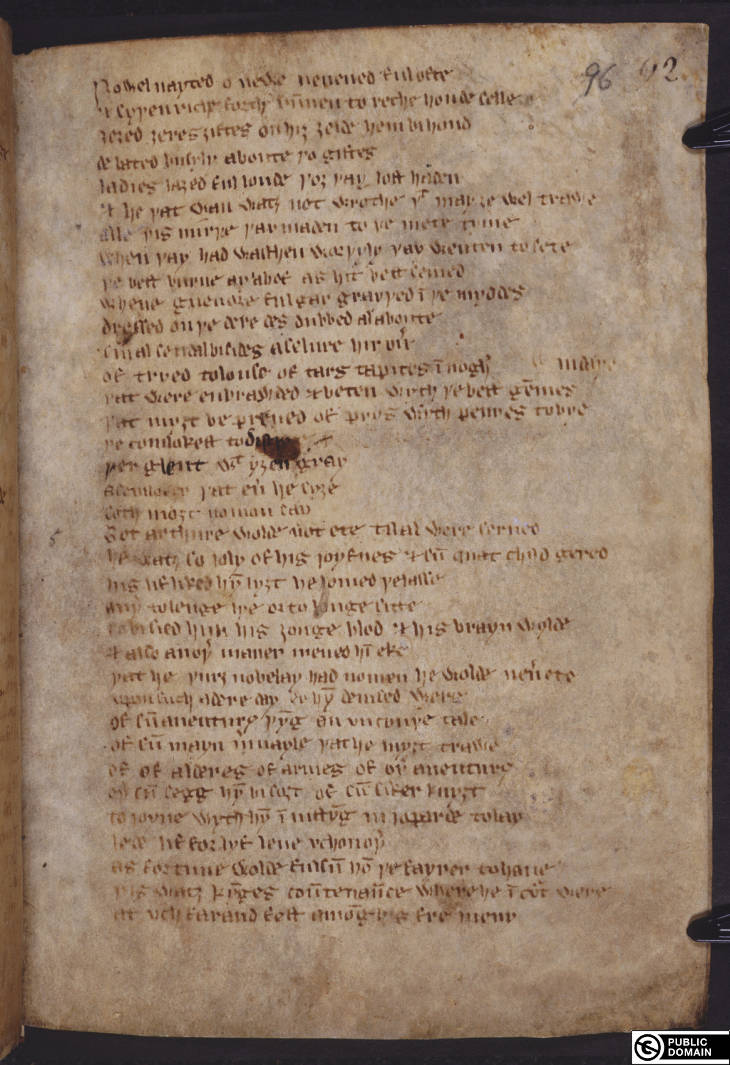 96 92.
Nowel nayted o newe neuened ful ofte
& syþen riche forth rūnen to reche honde selle
ȝeȝed ȝeres ȝiftes on hiȝ ȝelde hem bi hond
de bated busyly aboute þo giftes
ladies laȝed ful loude þoȝ þay lost haden
& he þat wan watȝ not wrothe þᵗ may ȝe wel trawe
alle þis mirþe þay maden to þe mete tyme
when þay had waschen worþyly þay wenten to sete
þe best burne ay abof as hit best semed
whene guenore ful gay grayþed ī þe myddes
dressed on þe dere des dubbed al aboute
smal sendal bisides a selure hir ouer
of tryed tolouse of tars tapites ī nogh
ī daye
þat were enbrawded & beten wyth þe best gēmes
þat myȝt be preued of prys wyth penyes to bye
þe comlokest to
þer glent wᵗ yȝen gray
a semloker þat euer he syȝe
soth moȝt no mon say
5
Bot arthure wolde not ete til al were serued
he watȝ so joly of his joyfnes & sūquat child gered
his lif liked hȳ lyȝt he louied þe lasse
auþer to lenge lye or to longe sitte
so bisied him his ȝonge blod & his brayn wylde
& also anoþer maner meued hī eke
þat he þurȝ nobelay had nomen he wolde neuer ete
vpon such a dere day er hȳ deuised were
of sū auenturus þȳg an vncouþe tale
of sū mayn meruayle þat he myȝt trawe
of of alderes of armes of oþer auenturus
oþer sū segg hȳ bisoȝt of sū siker knyȝt
to ioyne wyth hȳ ī iustȳg in joparde to lay
lede lif for lyf leue vchon oþer
as fortune wolde fulsū hō þe fayrer to haue
þis watȝ kȳges coūtenaūce where he ī court were
at vch farand fest amōg his fre meny
PUBLIC DOMAIN